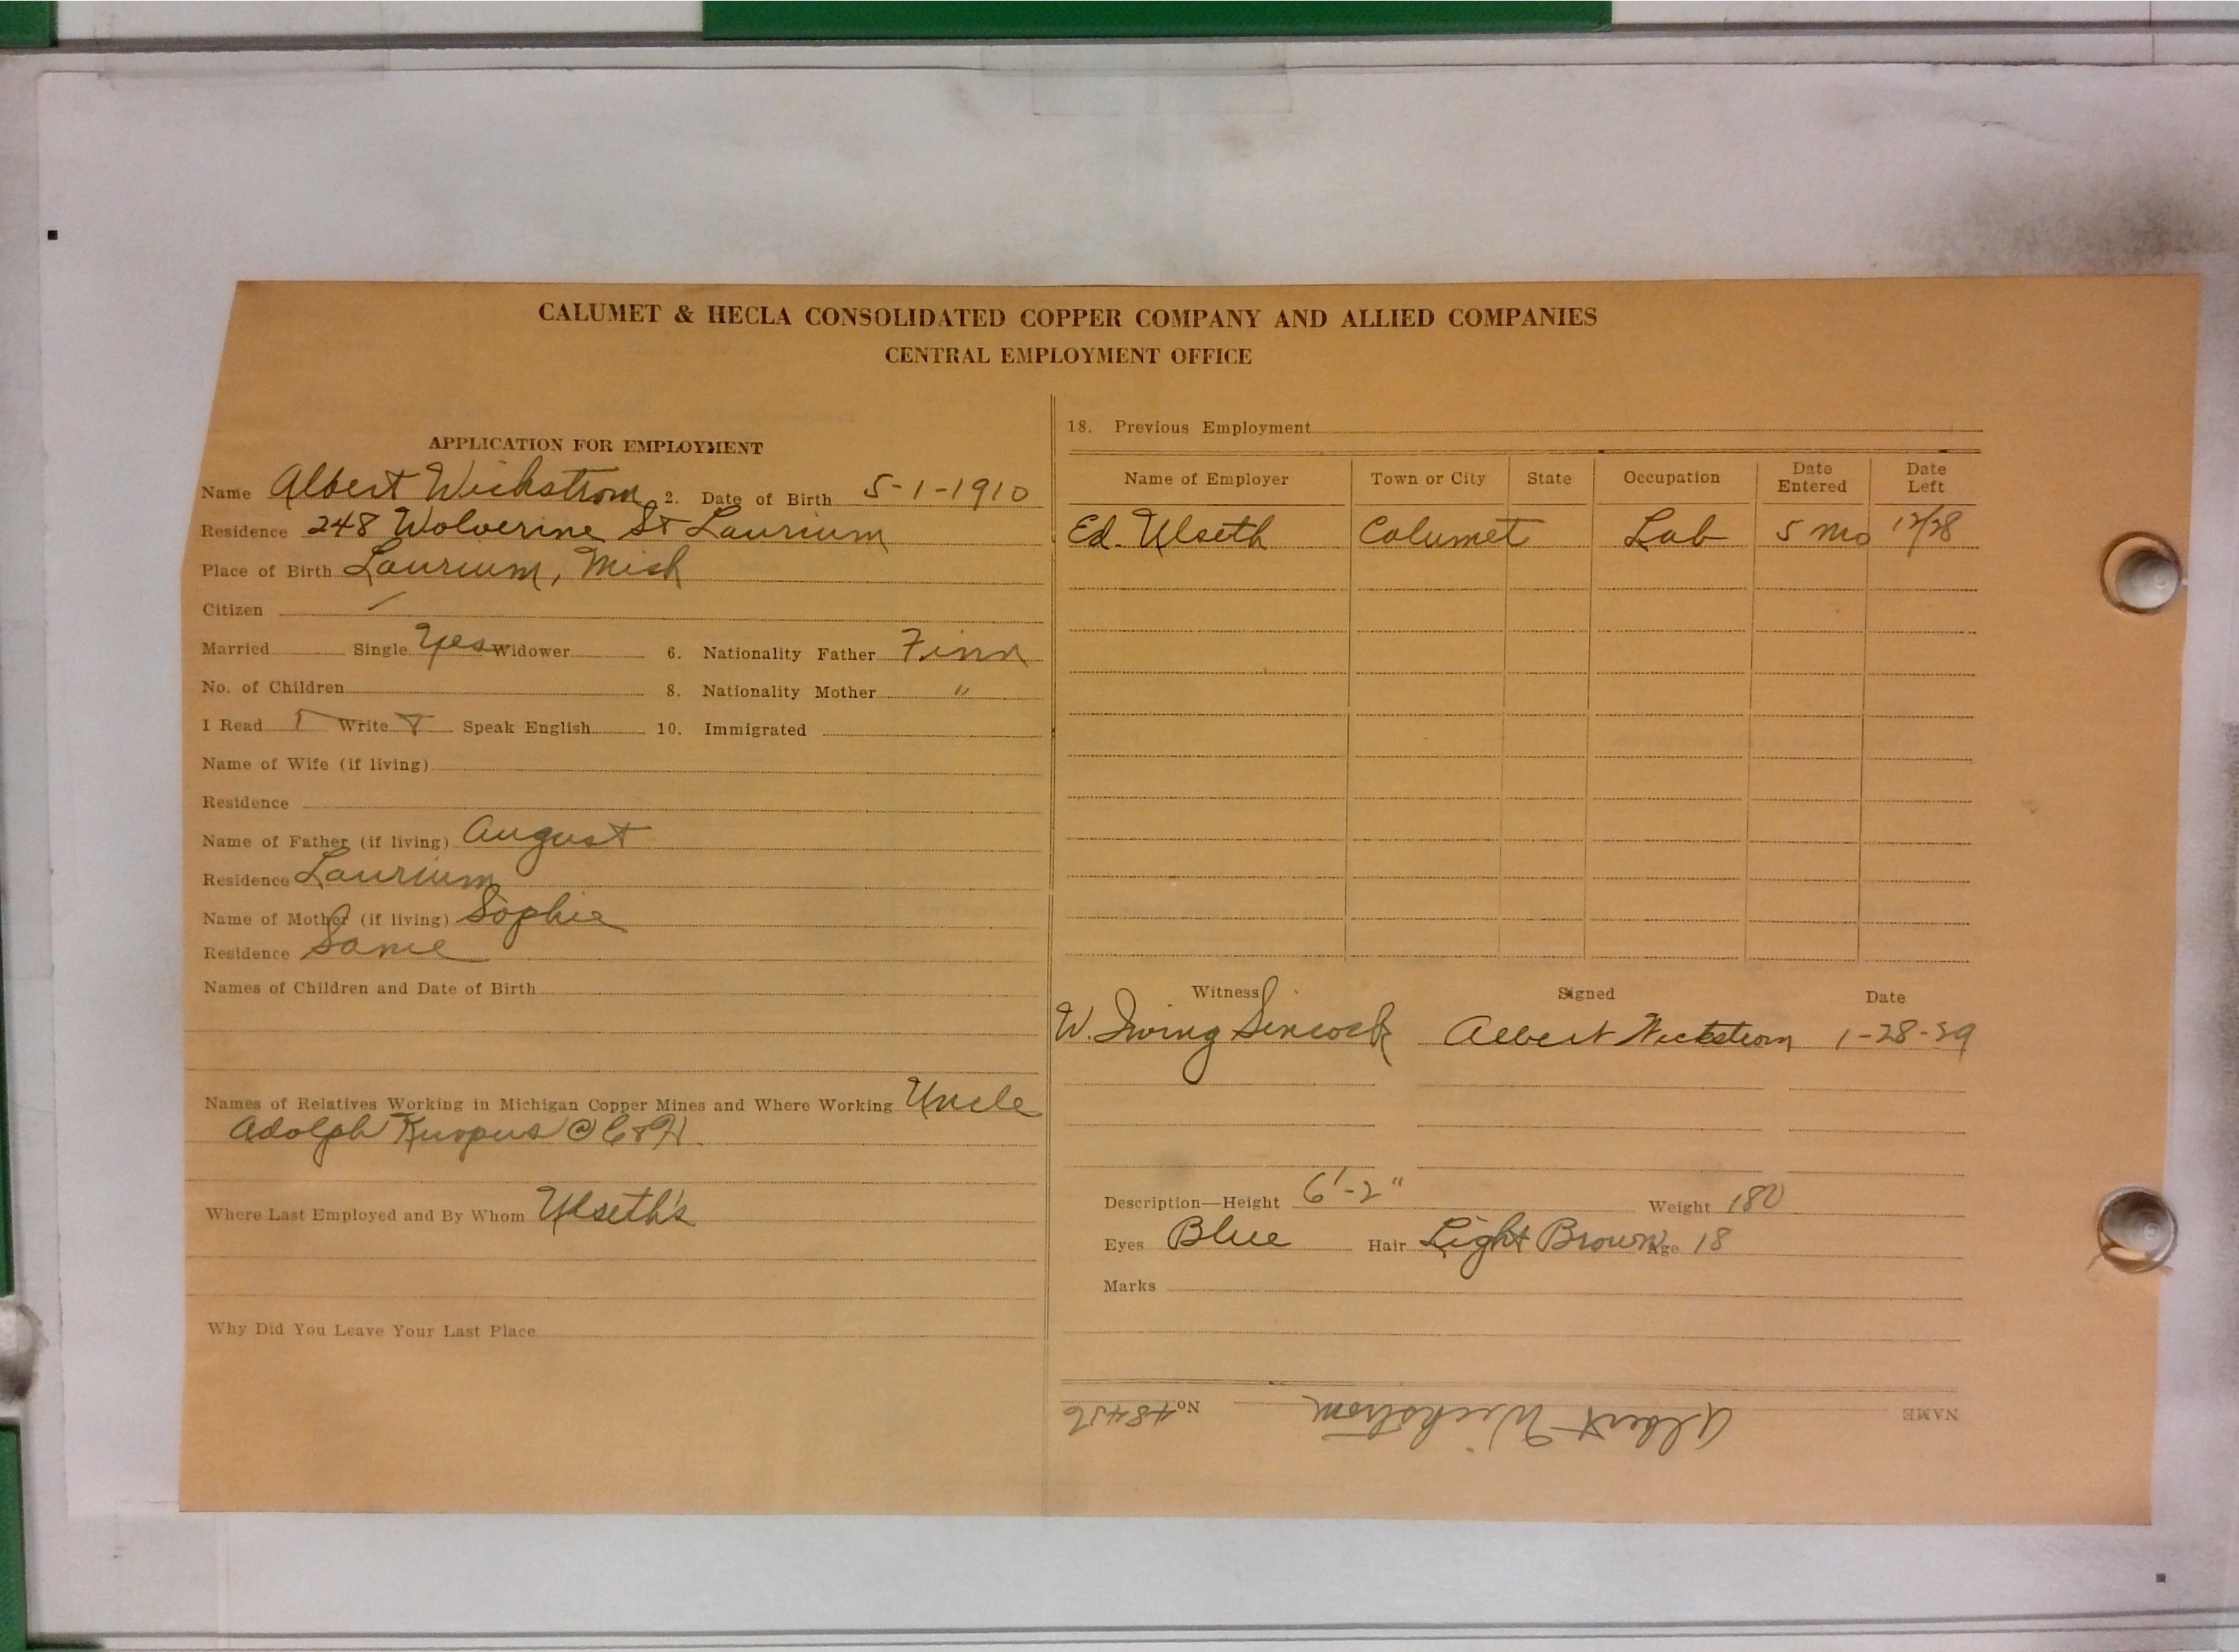 CALUMET & HECLA CONSOLIDATED COPPER COMPANY AND ALLIED COMPANIES
CENTRAL EMPLOYMENT OFFICE
APPLICATION FOR EMPLOYMENT
Name Albert Wickstrom 2. Date of Birth 5-1-1910
Residence 248 Wolverine St Laurium
Place of Birth Laurium, Mich
Citizen
Married Single Yes Widower 6. Nationality Father Finn
No. of Children 8. Nationality Mother "
I Read Write Speak English 10. Immigrated
Name of Wife (if living)
Residence
Name of Father (if living) August
Residence Laurium
Name of Mother (if living) Sophie
Residence Same
Names of Children and Date of Birth
Names of Relatives Working in Michigan Copper Mines and Where Working Uncle
Adolph @ C & H.
Where Last Employed and By Whom Ulseth's
Why Did You Leave Your Last Place
18. Previous Employment
Name of Employer Town or City State Occupation Date Entered Date Left
Ed. Ulseth Calumet Lab 5 mo 12/28
Witness Signed Date
W. Irving Sincock Albert Wickstrom 1-28-29
Description—Height 6'-2" Weight 180
Eyes Blue Hair Light Brown Age 18
Marks
NAME Albert Wickstrom No. 48456